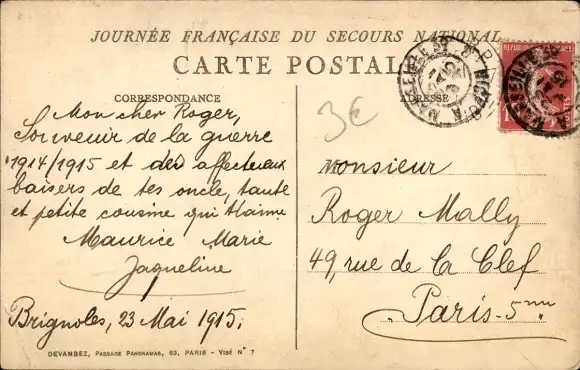 JOURNÉE FRANÇAISE DU SECOURS NATIONAL
CARTE POSTALE
CORRESPONDANCE
ADRESSE
3€
Mon cher Roger,
Souvenir de la guerre
1914/1915 et des affectueux
baisers de tes oncle, tante
et petite cousine qui t'aime
Maurice Marie
Jaqueline
Brignoles, 23 Mai 1915.
Monsieur
Roger Mally
49, rue de la Clef
Paris-5me.
DEVAMBEZ, PASSAGE PANORAMAS, 63, PARIS - VISÉ N° 7